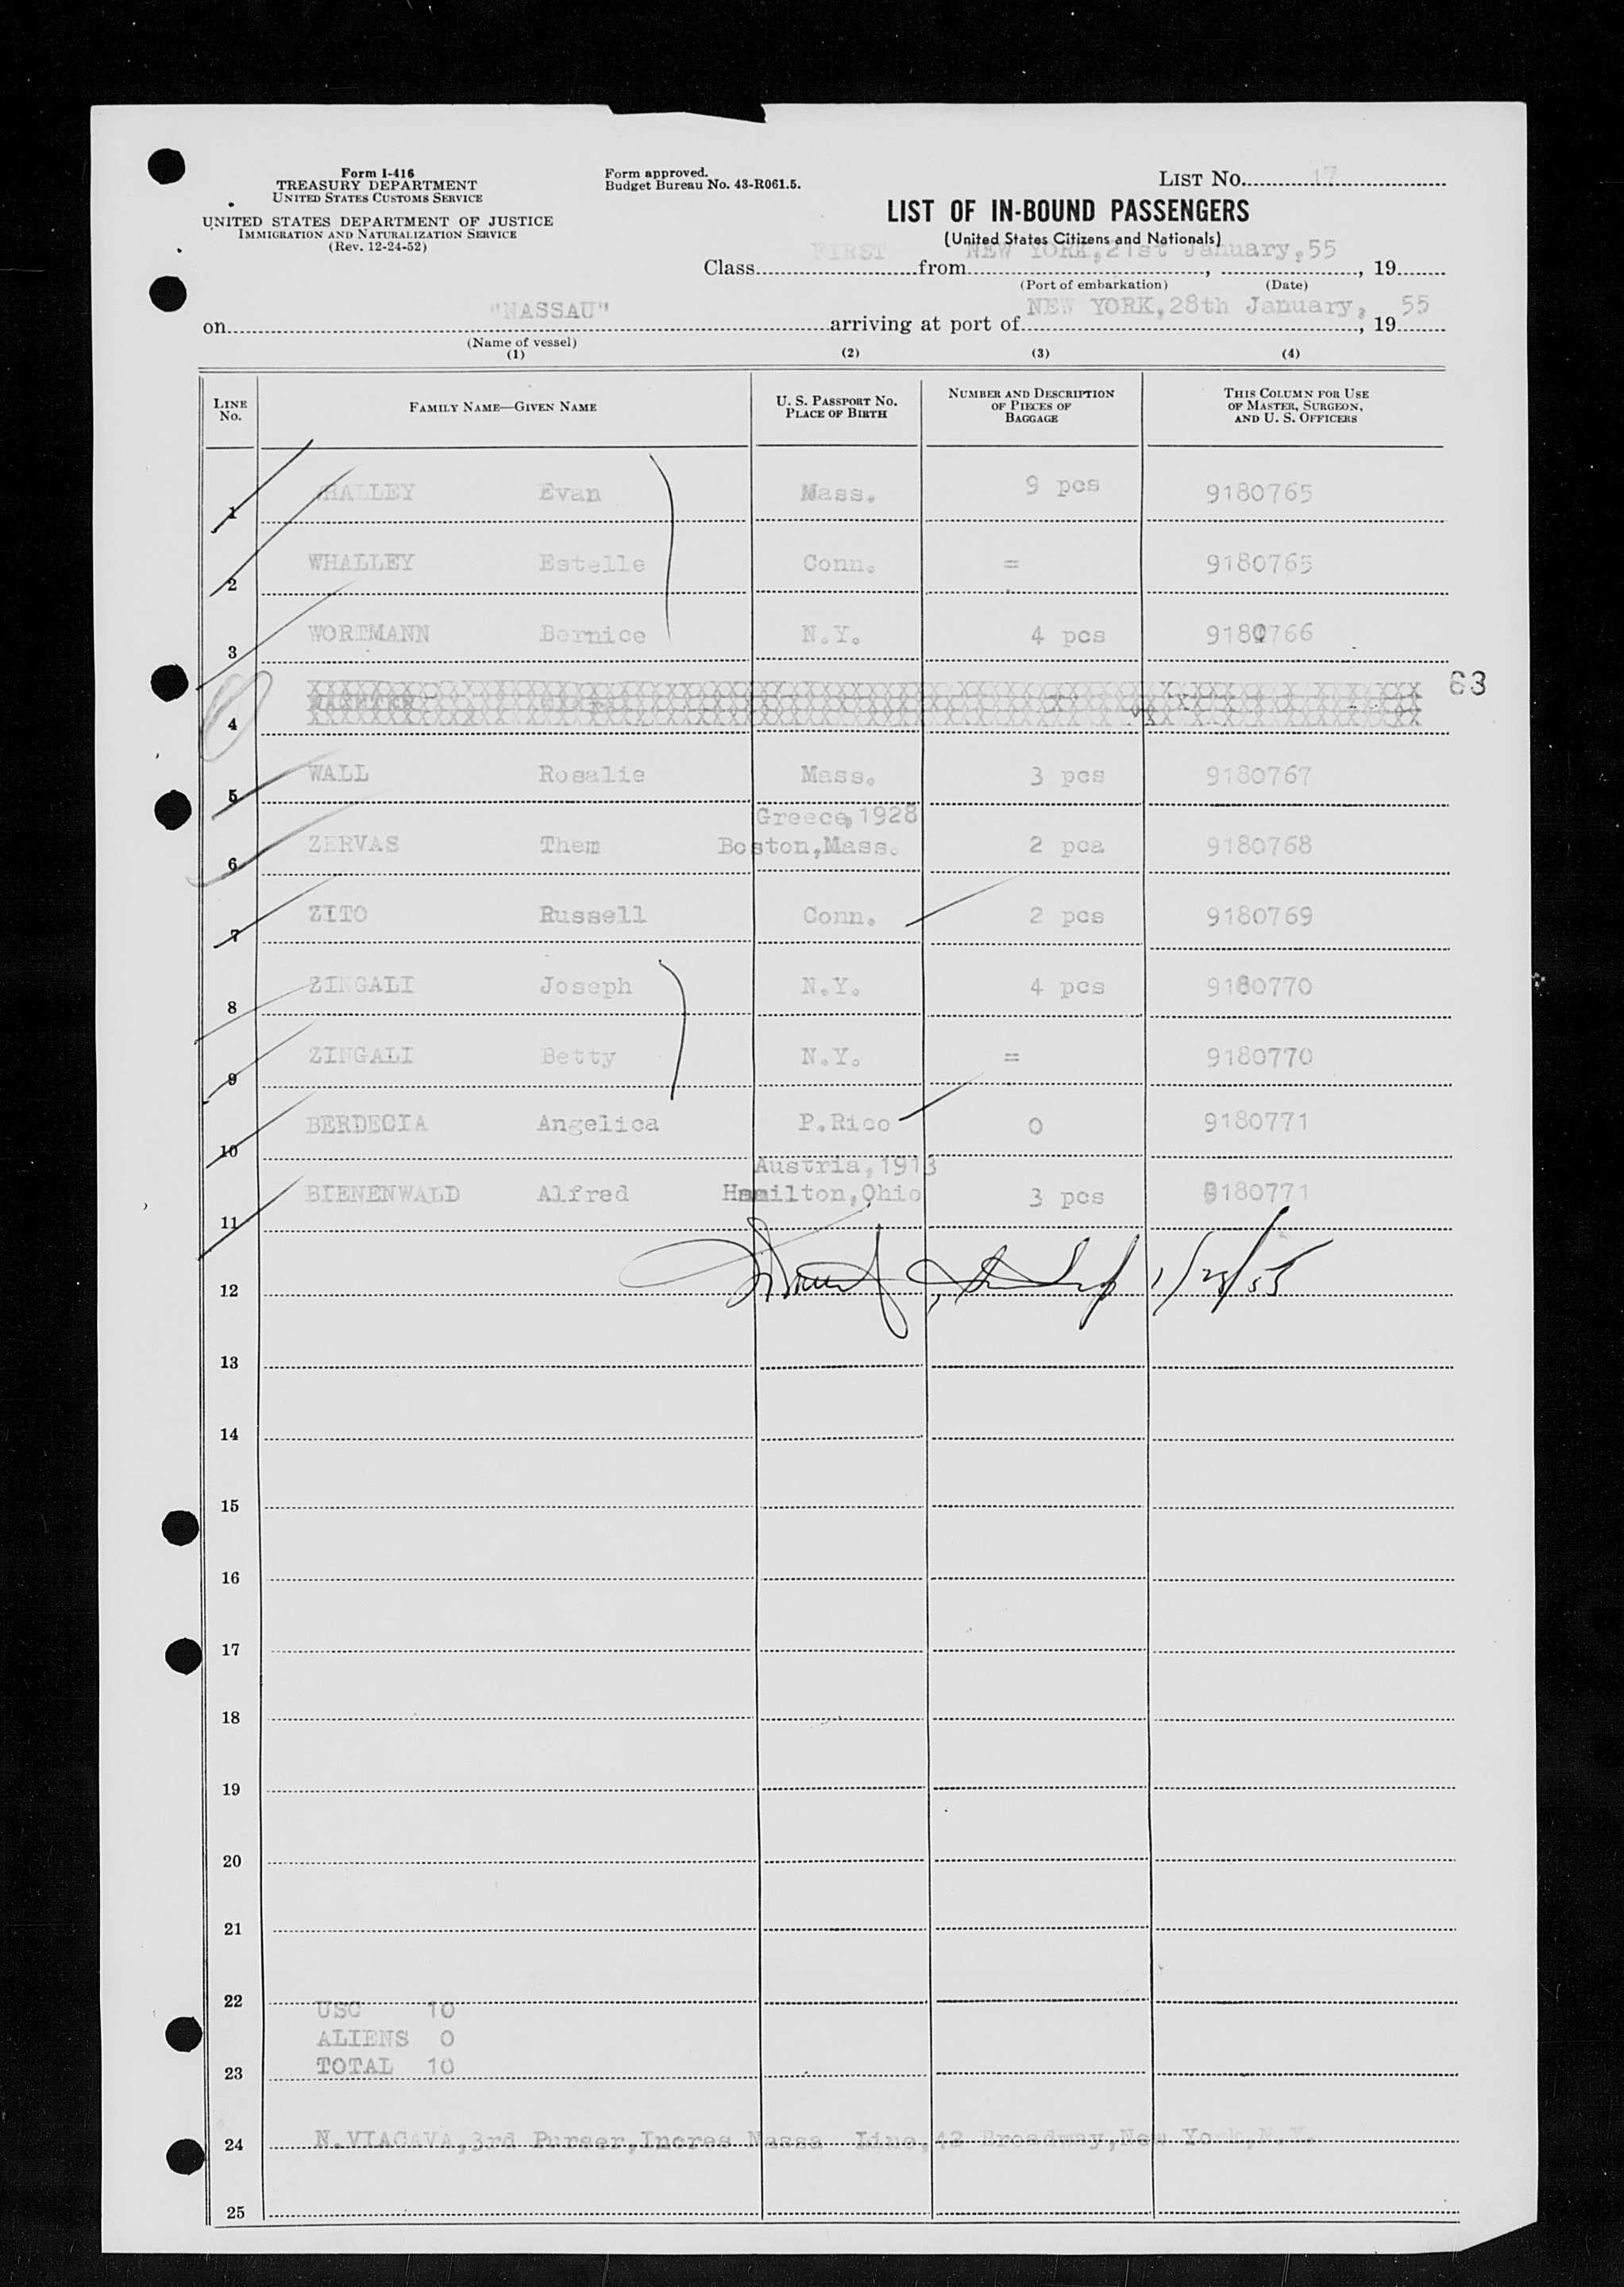 Form I-416
TREASURY DEPARTMENT
UNITED STATES CUSTOMS SERVICE
UNITED STATES DEPARTMENT OF JUSTICE
IMMIGRATION AND NATURALIZATION SERVICE
(Rev. 12-24-52)
Form approved.
Budget Bureau No. 43-R061.5.
LIST No. 17
LIST OF IN-BOUND PASSENGERS
(United States Citizens and Nationals)
Class FIRST from NEW YORK, 21st January, 55, 19
(Port of embarkation) (Date)
on "NASSAU" arriving at port of NEW YORK, 28th January, 19 55
(Name of vessel)
(1) (2) (3) (4)
LINE No. FAMILY NAME—GIVEN NAME U. S. PASSPORT NO. PLACE OF BIRTH NUMBER AND DESCRIPTION OF PIECES OF BAGGAGE THIS COLUMN FOR USE OF MASTER, SURGEON, AND U. S. OFFICERS
1 WHALLEY Evan Mass. 9 pcs 9180765
2 WHALLEY Estelle Conn. = 9180765
3 WORTMANN Bernice N.Y. 4 pcs 9180766
4
63
5 WALL Rosalie Mass. 3 pcs 9180767
Greece, 1928
6 ZERVAS Them Boston, Mass. 2 pca 9180768
7 ZITO Russell Conn. 2 pcs 9180769
8 ZINGALI Joseph N.Y. 4 pcs 9180770
9 ZINGALI Betty N.Y. = 9180770
10 BERDECIA Angelica P.Rico 0 9180771
Austria, 1913
11 BIENENWALD Alfred Hamilton, Ohio 3 pcs 9180771
12 1/28/55
13
14
15
16
17
18
19
20
21
22 USC 10
ALIENS 0
23 TOTAL 10
24 N.VIACAVA, 3rd Purser, Incres Nassa Line, 42 Broadway, New York, N.Y.
25